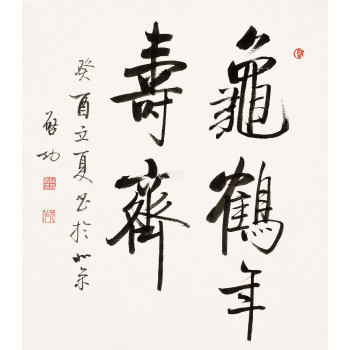 龜鶴年
壽齊
癸酉立夏書於北京
啟功